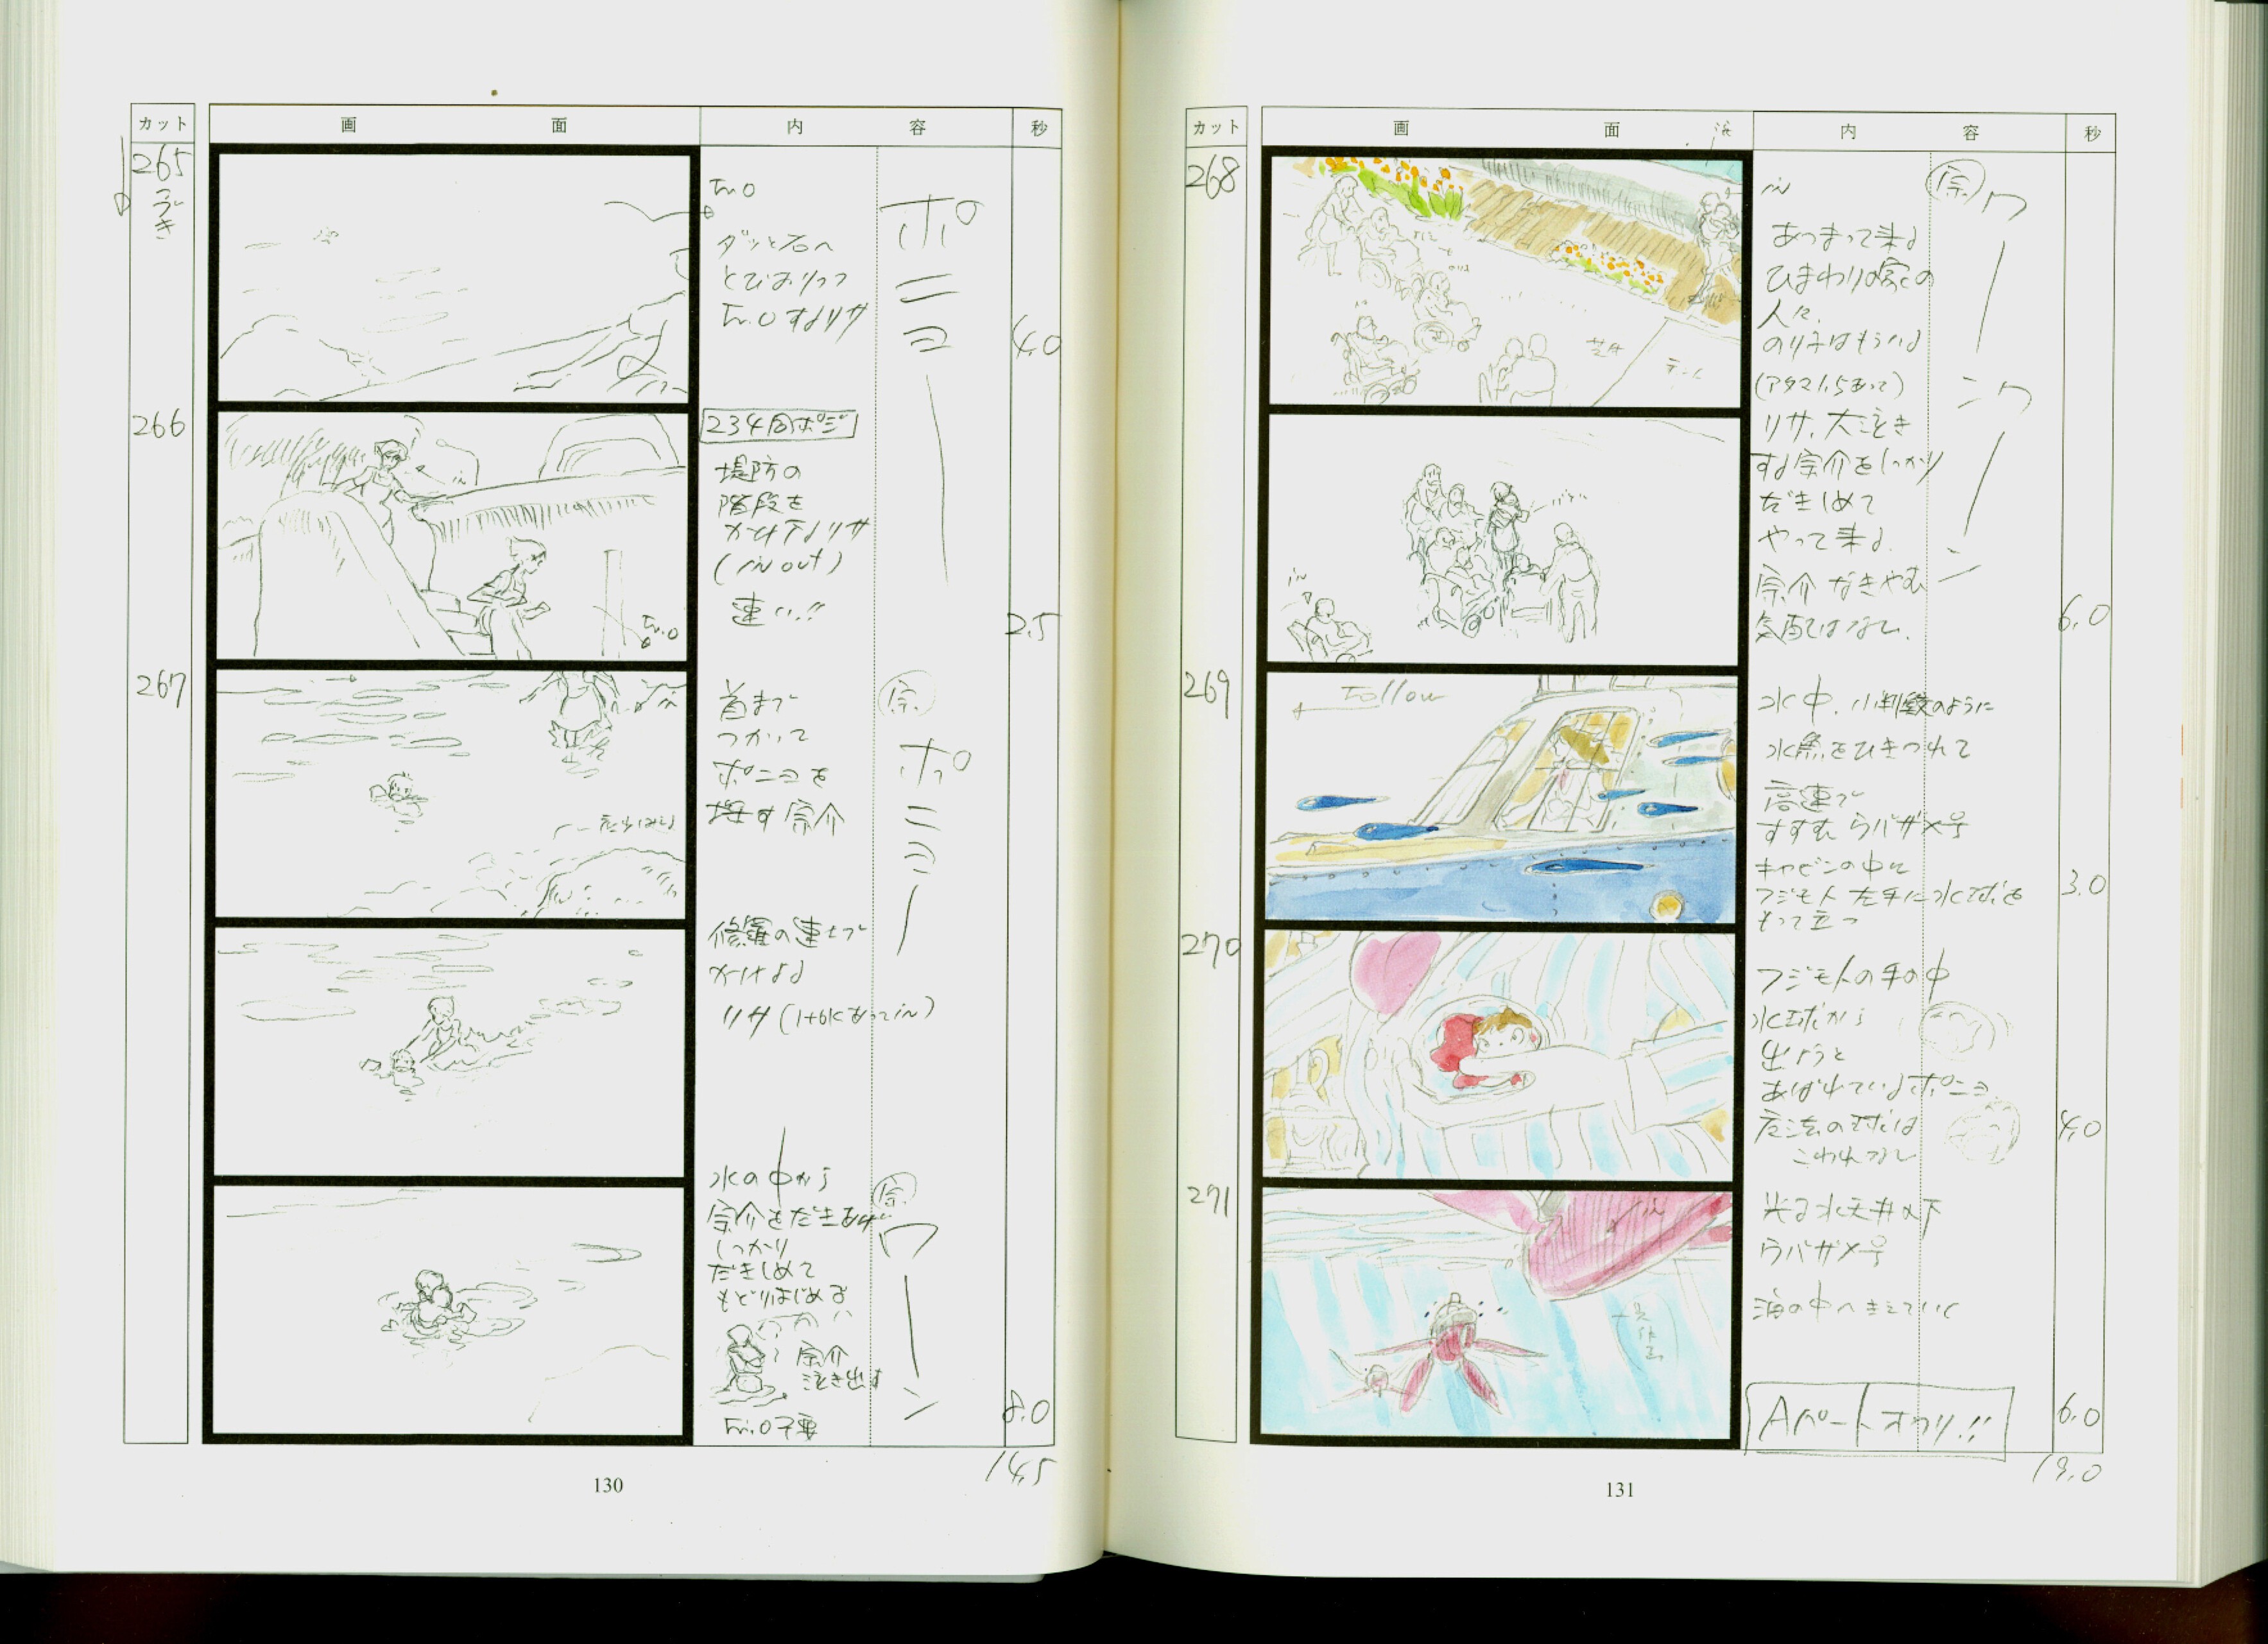 カット 画 面 内 容 秒
265
つづき
Fr.O
ダッと石へ
とびおりつつ
Fr.Oするリサ
ポニョー
4.0
266
234同ポジ
堤防の
階段を
かけ下るリサ
(in out)
速い!!
in
Fr.O
2.5
267
首まで
つかって
ポニョを
探す宗介
宗
ポニョー
in
修羅の速さで
かけよる
リサ(1+6Kあってin)
水の中から
宗介をだきあげ
しっかり
だきしめて
もどりはじめる
宗介
泣き出す
Fr.O不要
宗
ワーン
8.0
14.5
130
カット 画 面 内 容 秒
268
in
あつまって来る
ひまわりの家の
人々.
のり子はもういる
(アタマ1.5あって)
リサ、大泣き
する宗介をしっかり
だきしめて
やって来る.
宗介 なきやむ
気配はない.
宗
ワーンワーン
芝生
in
6.0
269
Follow
水中、小判鮫のように
水魚をひきつれて
高速で
すすむ ウバザメ号
キャビンの中に
フジモト 左手に水球を
もって立つ
3.0
270
フジモトの手の中
水球から
出ようと
あばれているポニョ
魔法の球は
こわれない
4.0
271
in
光る水天井の下
ウバザメ号
海の中へきえていく
Aパートオワリ!!
6.0
19.0
131